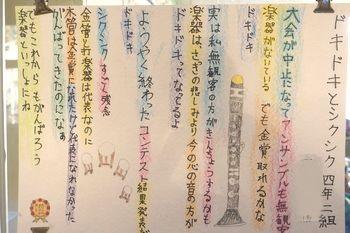 ドキドキとシクシク 四年二組
大会が中止になってアンサンブルも無観客
楽器がないている でも金賞取れるかな
実は私無観客の方がきんちょうするかも
楽器は、さっきの悲しみより今の心の音の方が
ドキドキってなってるよ
ようやく終わったコンテスト結果発表だ
ドキドキ
シクシク すごく残念
金管と打楽器は代表なのに
木管は金賞になれたけど代表になれなかった
がんばってきたのになあ
でもこれから もがんばろう
楽器といっしょにね